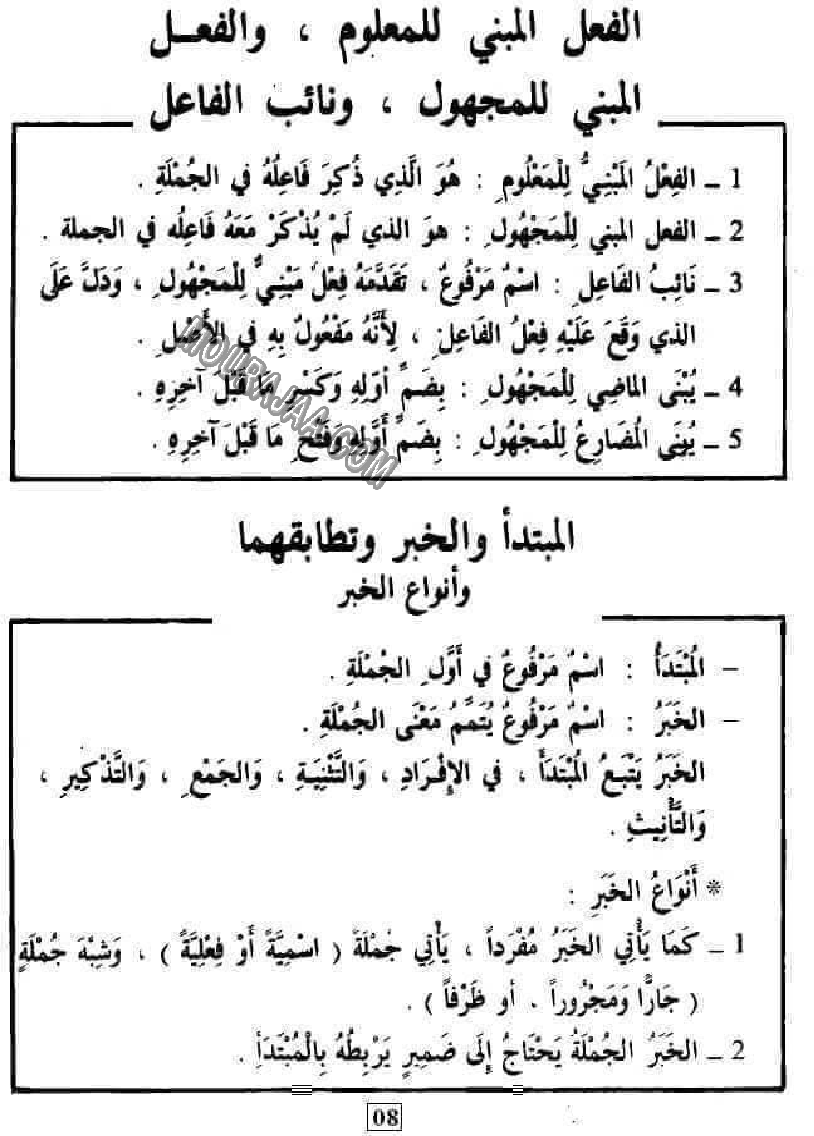 الفعل المبني للمعلوم ، والفعــل
المبني للمجهول ، ونائب الفاعل
1 ـ الفِعْلُ المَبْنِيُّ لِلْمَعْلُومِ : هُوَ الَّذِي ذُكِرَ فَاعِلُهُ في الجُمْلَةِ .
2 ـ الفعل المبني لِلْمَجْهُولِ : هوَ الذي لَمْ يُذْكَرْ مَعَهُ فَاعِلُه في الجملة .
3 ـ نَائِبُ الفَاعِلِ : اسْمٌ مَرْفُوعٌ ، تَقَدَّمَهُ فِعْلٌ مَبْنِيٌّ لِلْمَجْهُولِ ، وَدَلَّ عَلَى
الذي وَقَعَ عَلَيْهِ فِعْلُ الفَاعِلِ ، لِأَنَّهُ مَفْعُولٌ بِهِ في الأَصْلِ .
4 ـ يُبْنَى الماضِي لِلْمَجْهُولِ : بِضَمِّ أوّلِهِ وَكَسْرِ مَا قَبْلَ آخِرِهِ .
5 ـ يُبْنَى المُضَارِعُ لِلْمَجْهُولِ : بِضَمِّ أَوَّلِهِ وَفَتْحِ مَا قَبْلَ آخِرِهِ .
MOURAJAA.COM
المبتدأ والخبر وتطابقهما
وأنواع الخبر
– المُبْتَدَأُ : اسْمٌ مَرْفُوعٌ في أَوَّلِ الجُمْلَةِ .
– الخَبَرُ : اسْمٌ مَرْفُوعٌ يُتَمِّمُ مَعْنَى الجُمْلَةِ .
الخَبَرُ يَتْبَعُ المُبْتَدَأَ ، في الإِفْرَادِ ، وَالتَّثْنِيَةِ ، وَالجَمْعِ ، وَالتَّذْكِيرِ ،
وَالتَّأْنِيثِ .
* أَنْوَاعُ الخَبَرِ :
1 ـ كَمَا يَأْتِي الخَبَرُ مُفْرَداً ، يَأْتِي جُمْلَةً ( اسْمِيَّةً أَوْ فِعْلِيَّةً ) ، وَشِبْهَ جُمْلَةٍ
( جَارًّا وَمَجْرُوراً . أو ظَرْفاً ) .
2 ـ الخَبَرُ الجُمْلَةُ يَحْتَاجُ إِلَى ضَمِيرٍ يَرْبِطُهُ بِالْمُبْتَدَأِ .
08